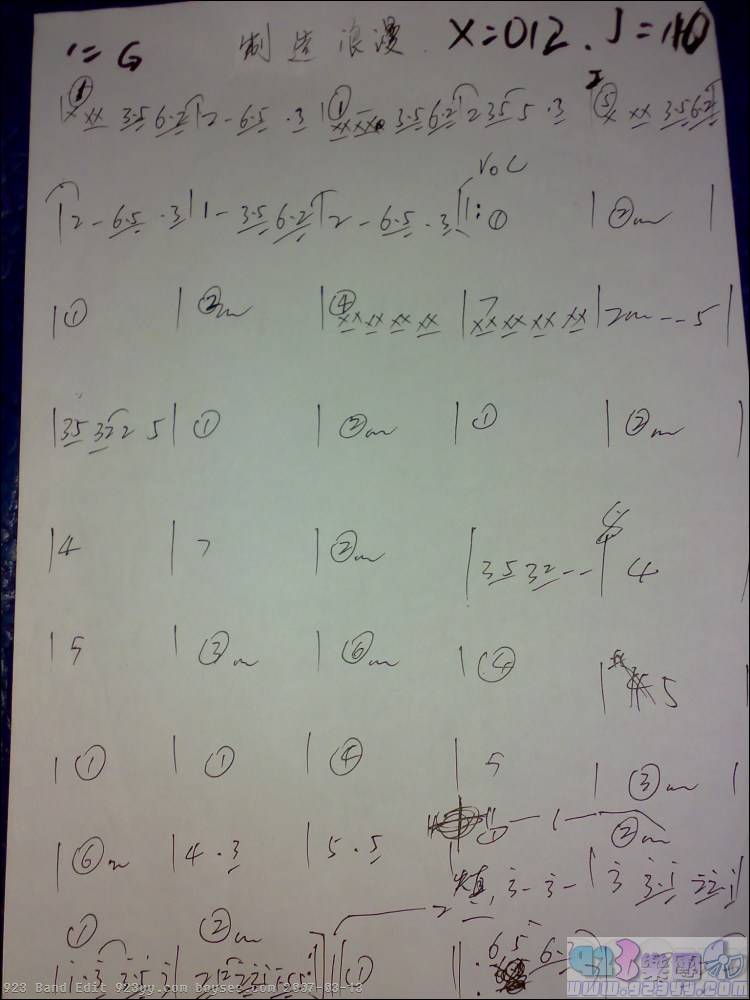 1=G 制造浪漫. X=012. J=110
|① xx xx 3·5 6·2|2 - 6·5 ·3|① xxxx 3·5 6·2|2 35 5 ·3|⑤ x xx 3·5 6·2|
|2 - 6·5 ·3|1 - 3·5 6·2|2 - 6·5 ·3||: ① |②m |
VOC
|① |②m |④ xx xx xx xx|7 xx xx xx xx|2m -- 5|
|35 322 5|① |②m |① |②m |
|4 |7 |②m |35 32 --|4
|5 |③m |⑥m |④ |5
|① |① |④ |5 |③m |
|⑥m |4 · 3 |5 · 5
① - 1 - ②m
3 - 3 - |3 3·1
① ②m
||① ||: 6 5 6·
923 Band Edit 923yy.com boysee.com 2007-03-13
923樂團
www.923yy.com